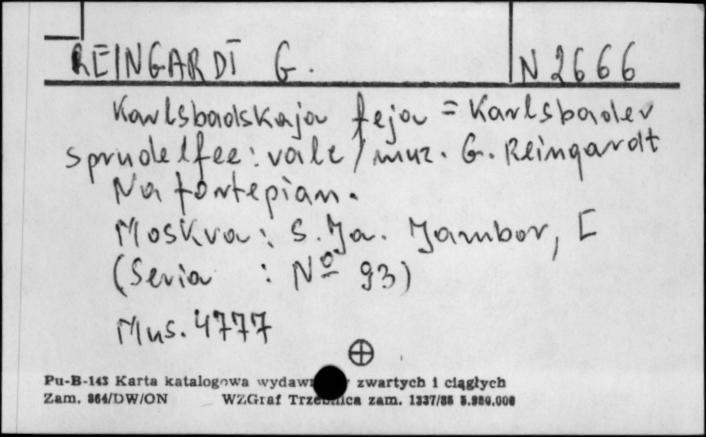 REINGARDT G.
N 2666
Karlsbadskaja feja = Karlsbader
sprudelfee : valc / muz. G. Reingardt
Na fortepian.
Moskva : S. Ja. Jambor, [
(Seria : Nº 93)
Mus. 4777
Pu-B-143 Karta katalogowa zwartych i ciągłych
Zam. 864/DW/ON WZGraf Trzebnica zam. 1337/85